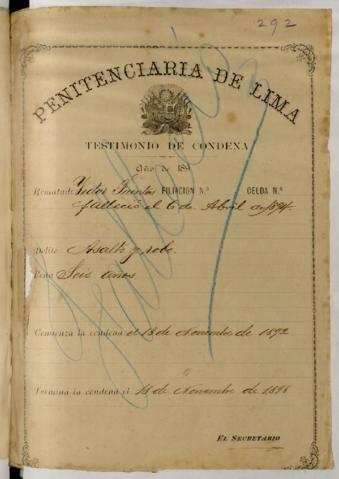 292
PENITENCIARIA DE LIMA
TESTIMONIO DE CONDENA
Año de 189
Rematado Victor Fuentes FILIACIÓN N.º CELDA N.º
falleció el 6 de Abril de 1894.
Delito Asalto y robo.
Pena Seis años
Comienza la condena el 18 de Noviembre de 1892
Termina la condena el de Noviembre de 1898
EL SECRETARIO
Falleció